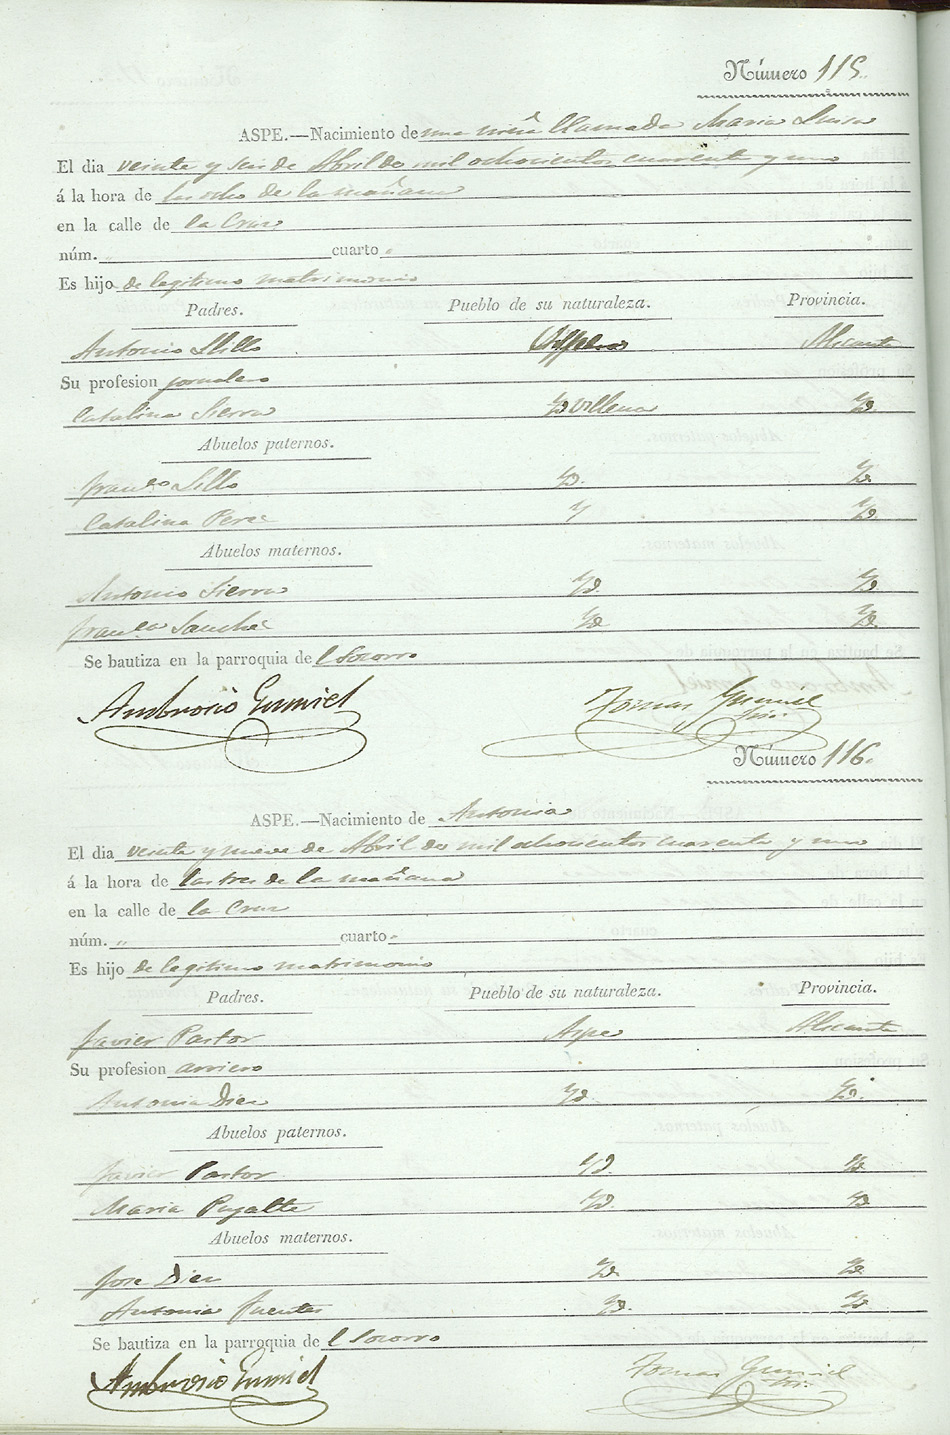 Número 115.
ASPE.—Nacimiento de una niña llamada Maria Luisa
El dia veinte y seis de Abril de mil ochocientos cuarenta y uno
á la hora de las ocho de la mañana
en la calle de la Cruz
núm. " cuarto "
Es hijo de legitimo matrimonio
Padres. Pueblo de su naturaleza. Provincia.
Antonio Lillo Alicante
Su profesion jornalero
Catalina Sierra Villena Yd.
Abuelos paternos.
Franco Lillo Yd. Yd.
Catalina Perez Y Yd.
Abuelos maternos.
Antonio Sierra Yd. Yd.
Franca Sanchez Yd. Yd.
Se bautiza en la parroquia del Socorro
Ambrosio Gumiel Tomas Gumiel
Srio.
Número 116.
ASPE.—Nacimiento de Antonia
El dia veinte y nueve de Abril de mil ochocientos cuarenta y uno
á la hora de las tres de la mañana
en la calle de la Cruz
núm. " cuarto "
Es hijo de legitimo matrimonio
Padres. Pueblo de su naturaleza. Provincia.
Javier Pastor Aspe Alicante
Su profesion arriero
Antonia Diez Yd. Yd.
Abuelos paternos.
Javier Pastor Yd. Yd.
Maria Pujalte Yd. Yd.
Abuelos maternos.
Jose Diez Yd. Yd.
Antonia Fuentes Yd. Yd.
Se bautiza en la parroquia del Socorro
Ambrosio Gumiel Tomas Gumiel
Srio.